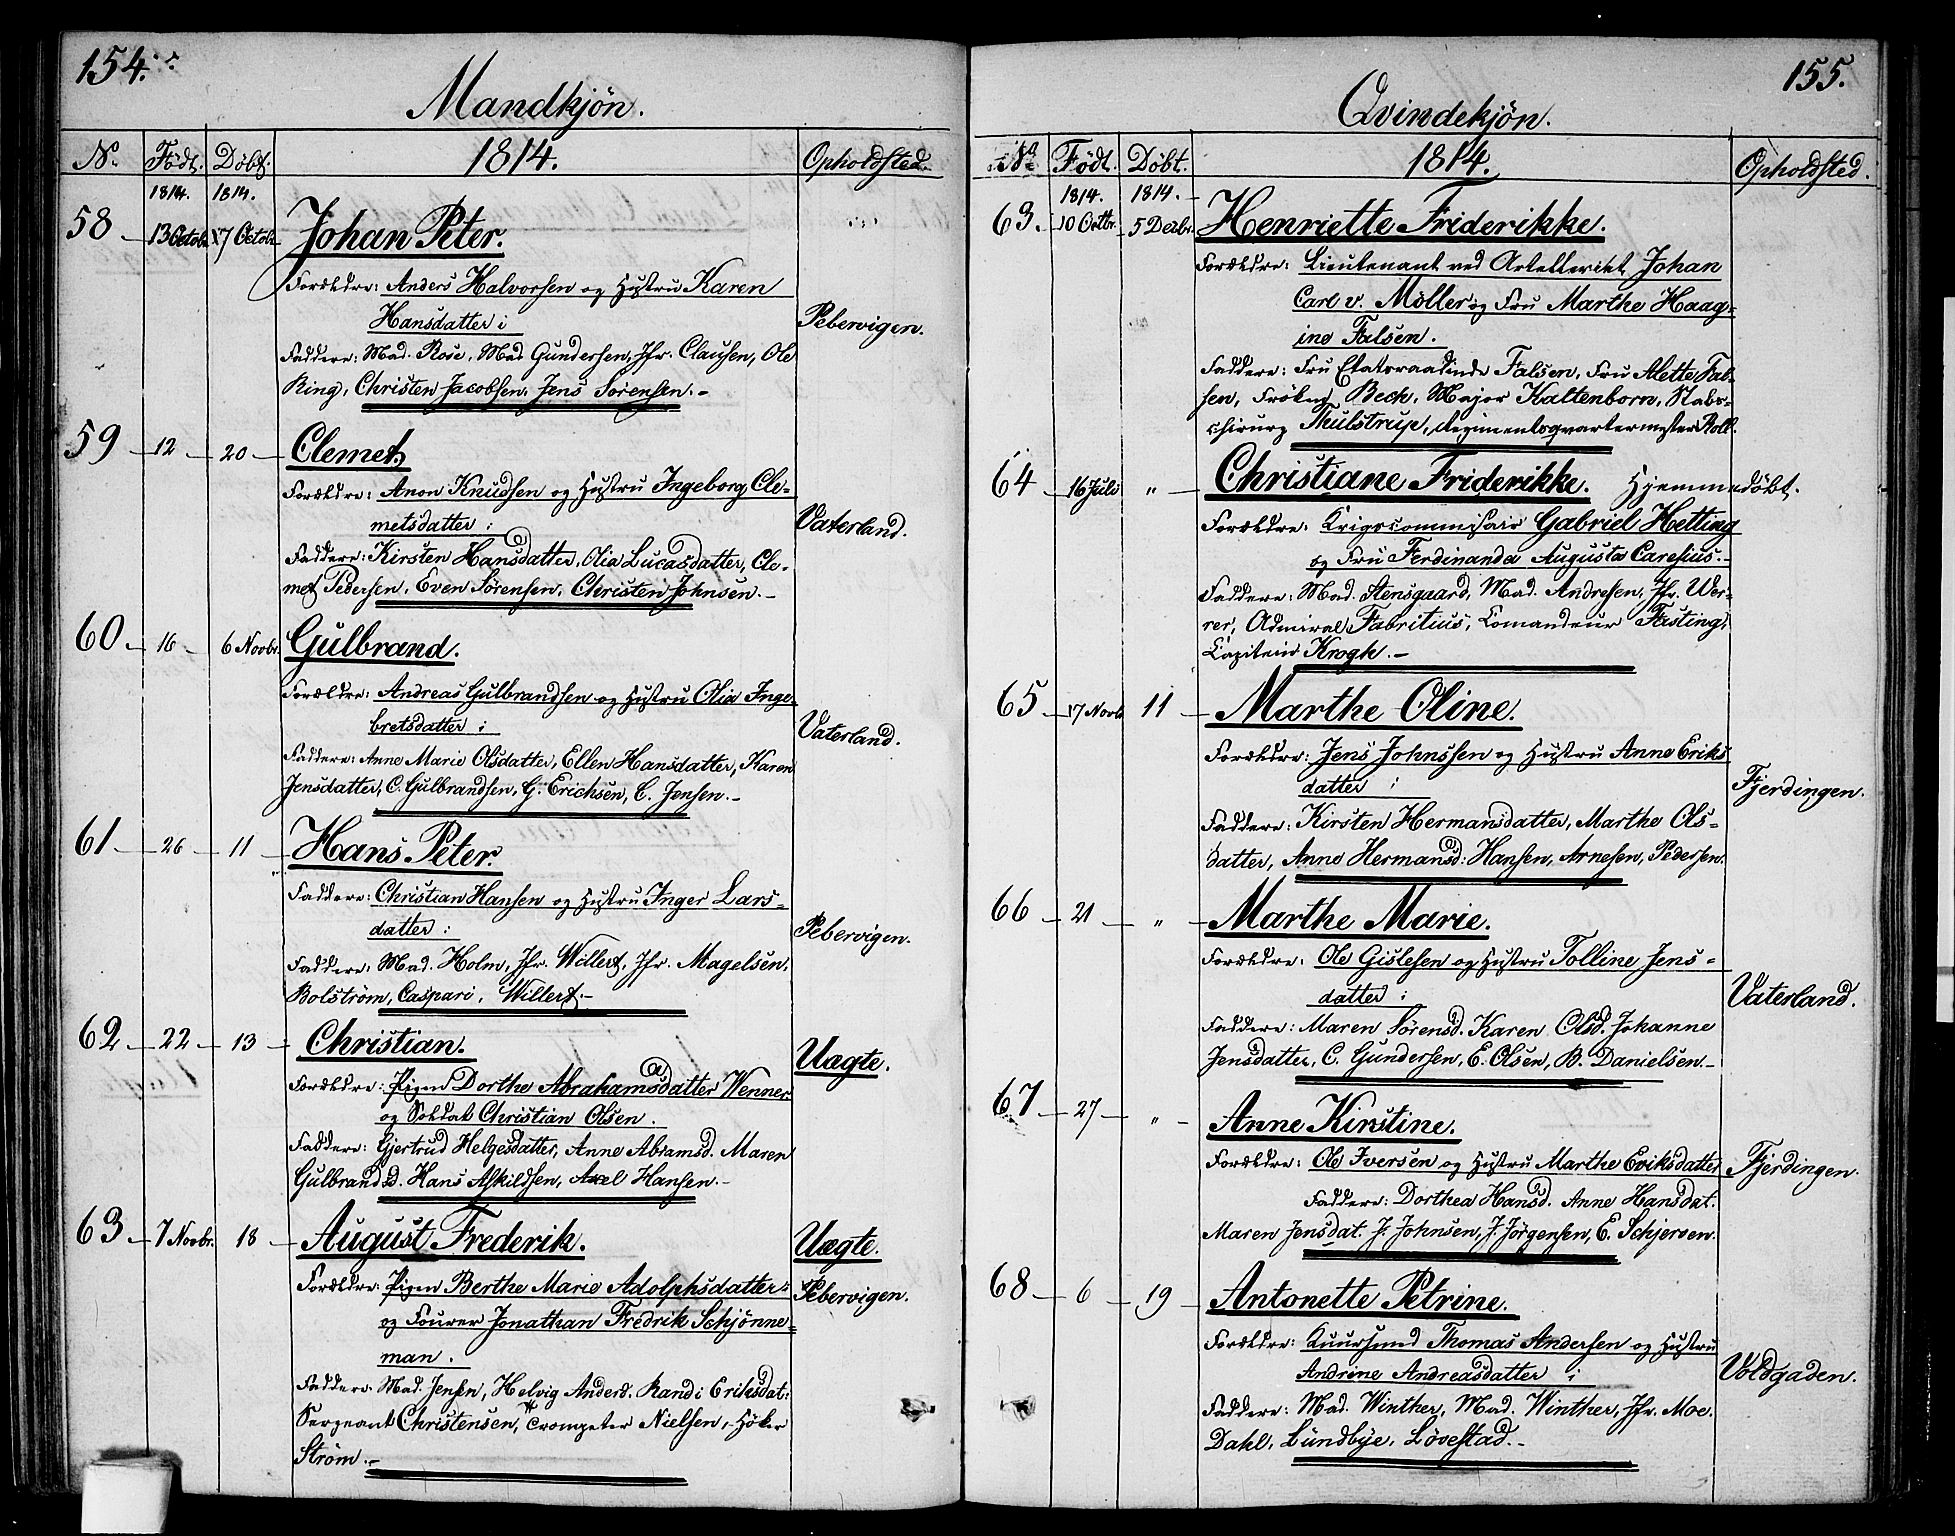 154.
Mandkjön.
No. Födt. Döbt. 1814. Opholdsted.
1814. 1814.
58 13 Octobr. 17 Octobr. Johan Peter.
Forældre: Anders Halvorsen og Hustru Karen
Hansdatter i Pebervigen.
Faddere: Mad. Rose, Mad Gundersen, Jfr. Clausen, Ole
Ring, Christen Jacobsen, Jens Sörensen.
59 12 20 Clemet.
Forældre: Anon Knudsen og Hustru Ingeborg Cle-
metsdatter: Vaterland.
Faddere: Kirsten Hansdatter, Olia Lucasdatter, Cle-
met Pedersen, Even Sörensen, Christen Johnsen.
60 16 6 Novbr. Gulbrand.
Forældre: Andreas Gulbrandsen og Hustru Olia Inge-
bretsdatter i Vaterland.
Faddere: Anne Marie Olsdatter, Ellen Hansdatter, Karen
Jensdatter, C. Gulbrandsen, G. Erichsen, C. Jensen.
61 26 11 Hans Peter.
Faddere: Christian Hansen og Hustru Inger Lars-
datter: Pebervigen.
Faddere: Mad. Holm, Jfr. Willert, Jfr. Magelsen,
Bolström, Caspari, Willert.
62 22 13 Christian. Uægte.
Forældre: Pigen Dorthe Abrahamsdatter Wenner
og Soldat Christian Olsen.
Faddere: Gjertrud Helgesdatter, Anne Abramsd. Maren
Gulbrandsd. Hans Askildsen, Axel Hansen.
63 7 Novbr. 18 August Frederik. Uægte.
Forældre: Pigen Berthe Marie Adolphsdatter Pebervigen.
og Fourer Jonathan Fredrik Schjönne-
man.
Faddere: Mad. Jensen, Helvig Andersd. Randi Eriksdat:
Sergeant Christensen, Trompeter Nielsen, Höker
Ström.
155.
Qvindekjön.
No. Födt. Döbt. 1814. Opholdsted.
1814. 1814.
63. 10 Octbr. 5 Decbr. Henriette Friderikke.
Forældre: Lieutenant ved Artelleriet Johan
Carl v. Möller og Fru Marthe Haag-
ine Falsen.
Faddere: Fru Etatsraadinde Falsen, Fru Alette Fal-
sen, Fröken Beck, Major Kaltenborn, Stabs-
chirurg Thulstrup, Regimentsqvartermester Roll.
64 16 Juli " Christiane Friderikke. Hjemmedöbt.
Forældre: Krigscommisair Gabriel Hetting
og Fru Ferdinanda Augusta Caresius.
Faddere: Mad. Stensgaard, Mad. Andresen, Jfr. Wer-
rer, Admiral Fabritius, Comandeur Fasting,
Capitein Krogh.
65 17 Novb. 11 Marthe Oline.
Forældre: Jens Johnssen og Hustru Anne Eriks
datter i Fjerdingen.
Faddere: Kirsten Hermansdatter, Marthe Ols-
datter, Anne Hermansd: Hansen, Arnesen, Pedersen.
66 21 " Marthe Marie.
Forældre: Ole Gislesen og Hustru Tolline Jens-
datter i Vaterland.
Faddere: Maren Sörensd. Karen Olsd. Johanne
Jensdatter, C. Gundersen, E. Olsen, B. Danielsen.
67 27 " Anne Kirstine.
Forældre: Ole Iversen og Hustru Marthe Eriksdatter Fjerdingen.
Faddere: Dorthea Hansd. Anne Hansdat.
Maren Jensdat. J. Johnsen, J. Jörgensen, E. Schjerven.
68 6 19 Antonette Petrine.
Forældre: Thomas Andersen og Hustru
Andrine Andreasdatter i Voldgaden.
Faddere: Mad. Winther, Mad. Winther, Jfr. Moe.
Dahl, Lundbye, Lövestad.